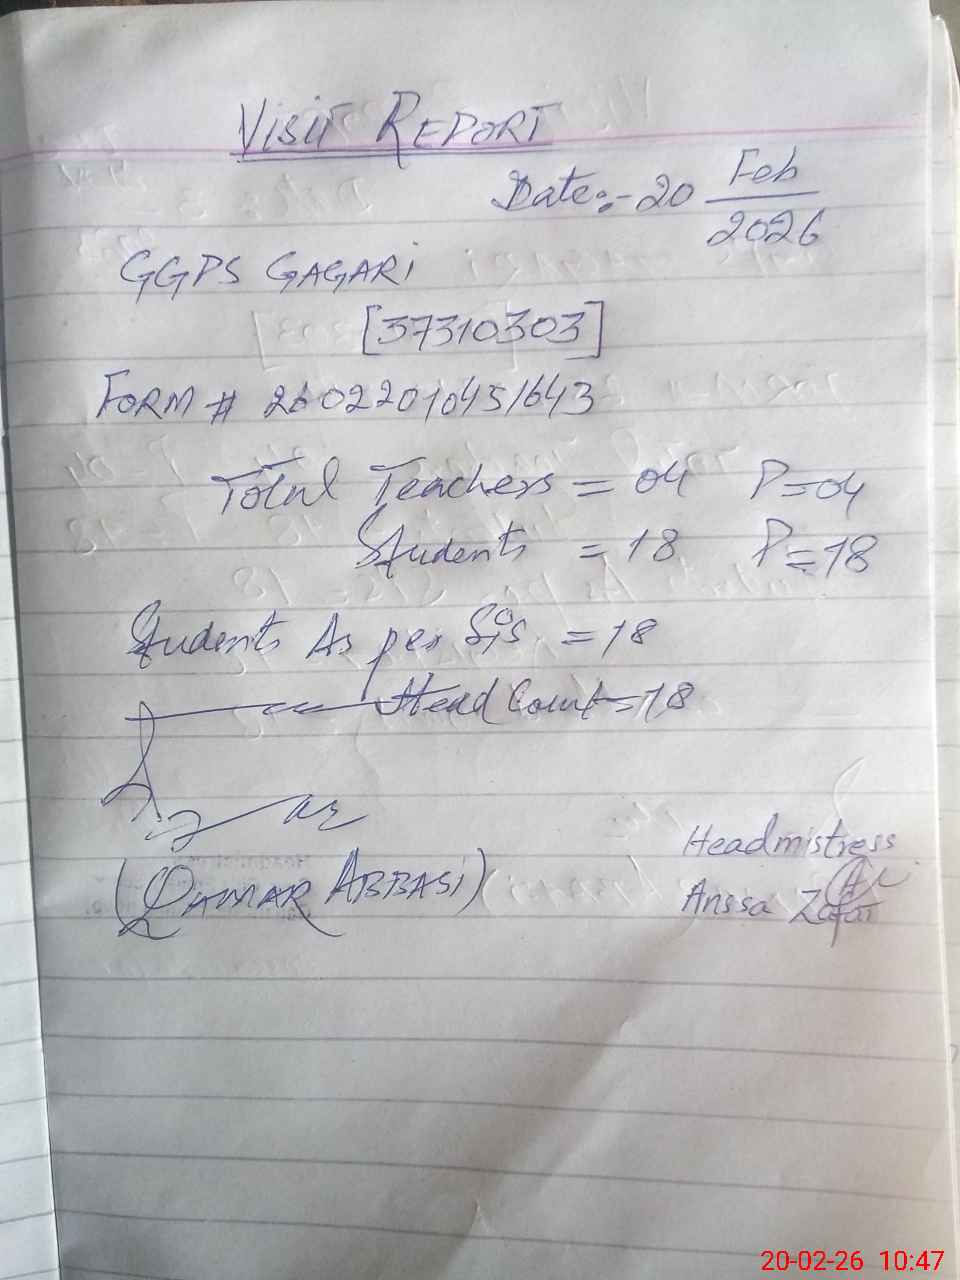 VISIT REPORT
Date:- 20 Feb
2026
GGPS GAGARI
[37310303]
FORM # 26022010451643
Total Teachers = 04 P=04
Students = 18 P=18
Students As per SIS = 18
Head Count = 18
(QAMAR ABBASI)
Headmistress
Anssa Zafar
20-02-26 10:47